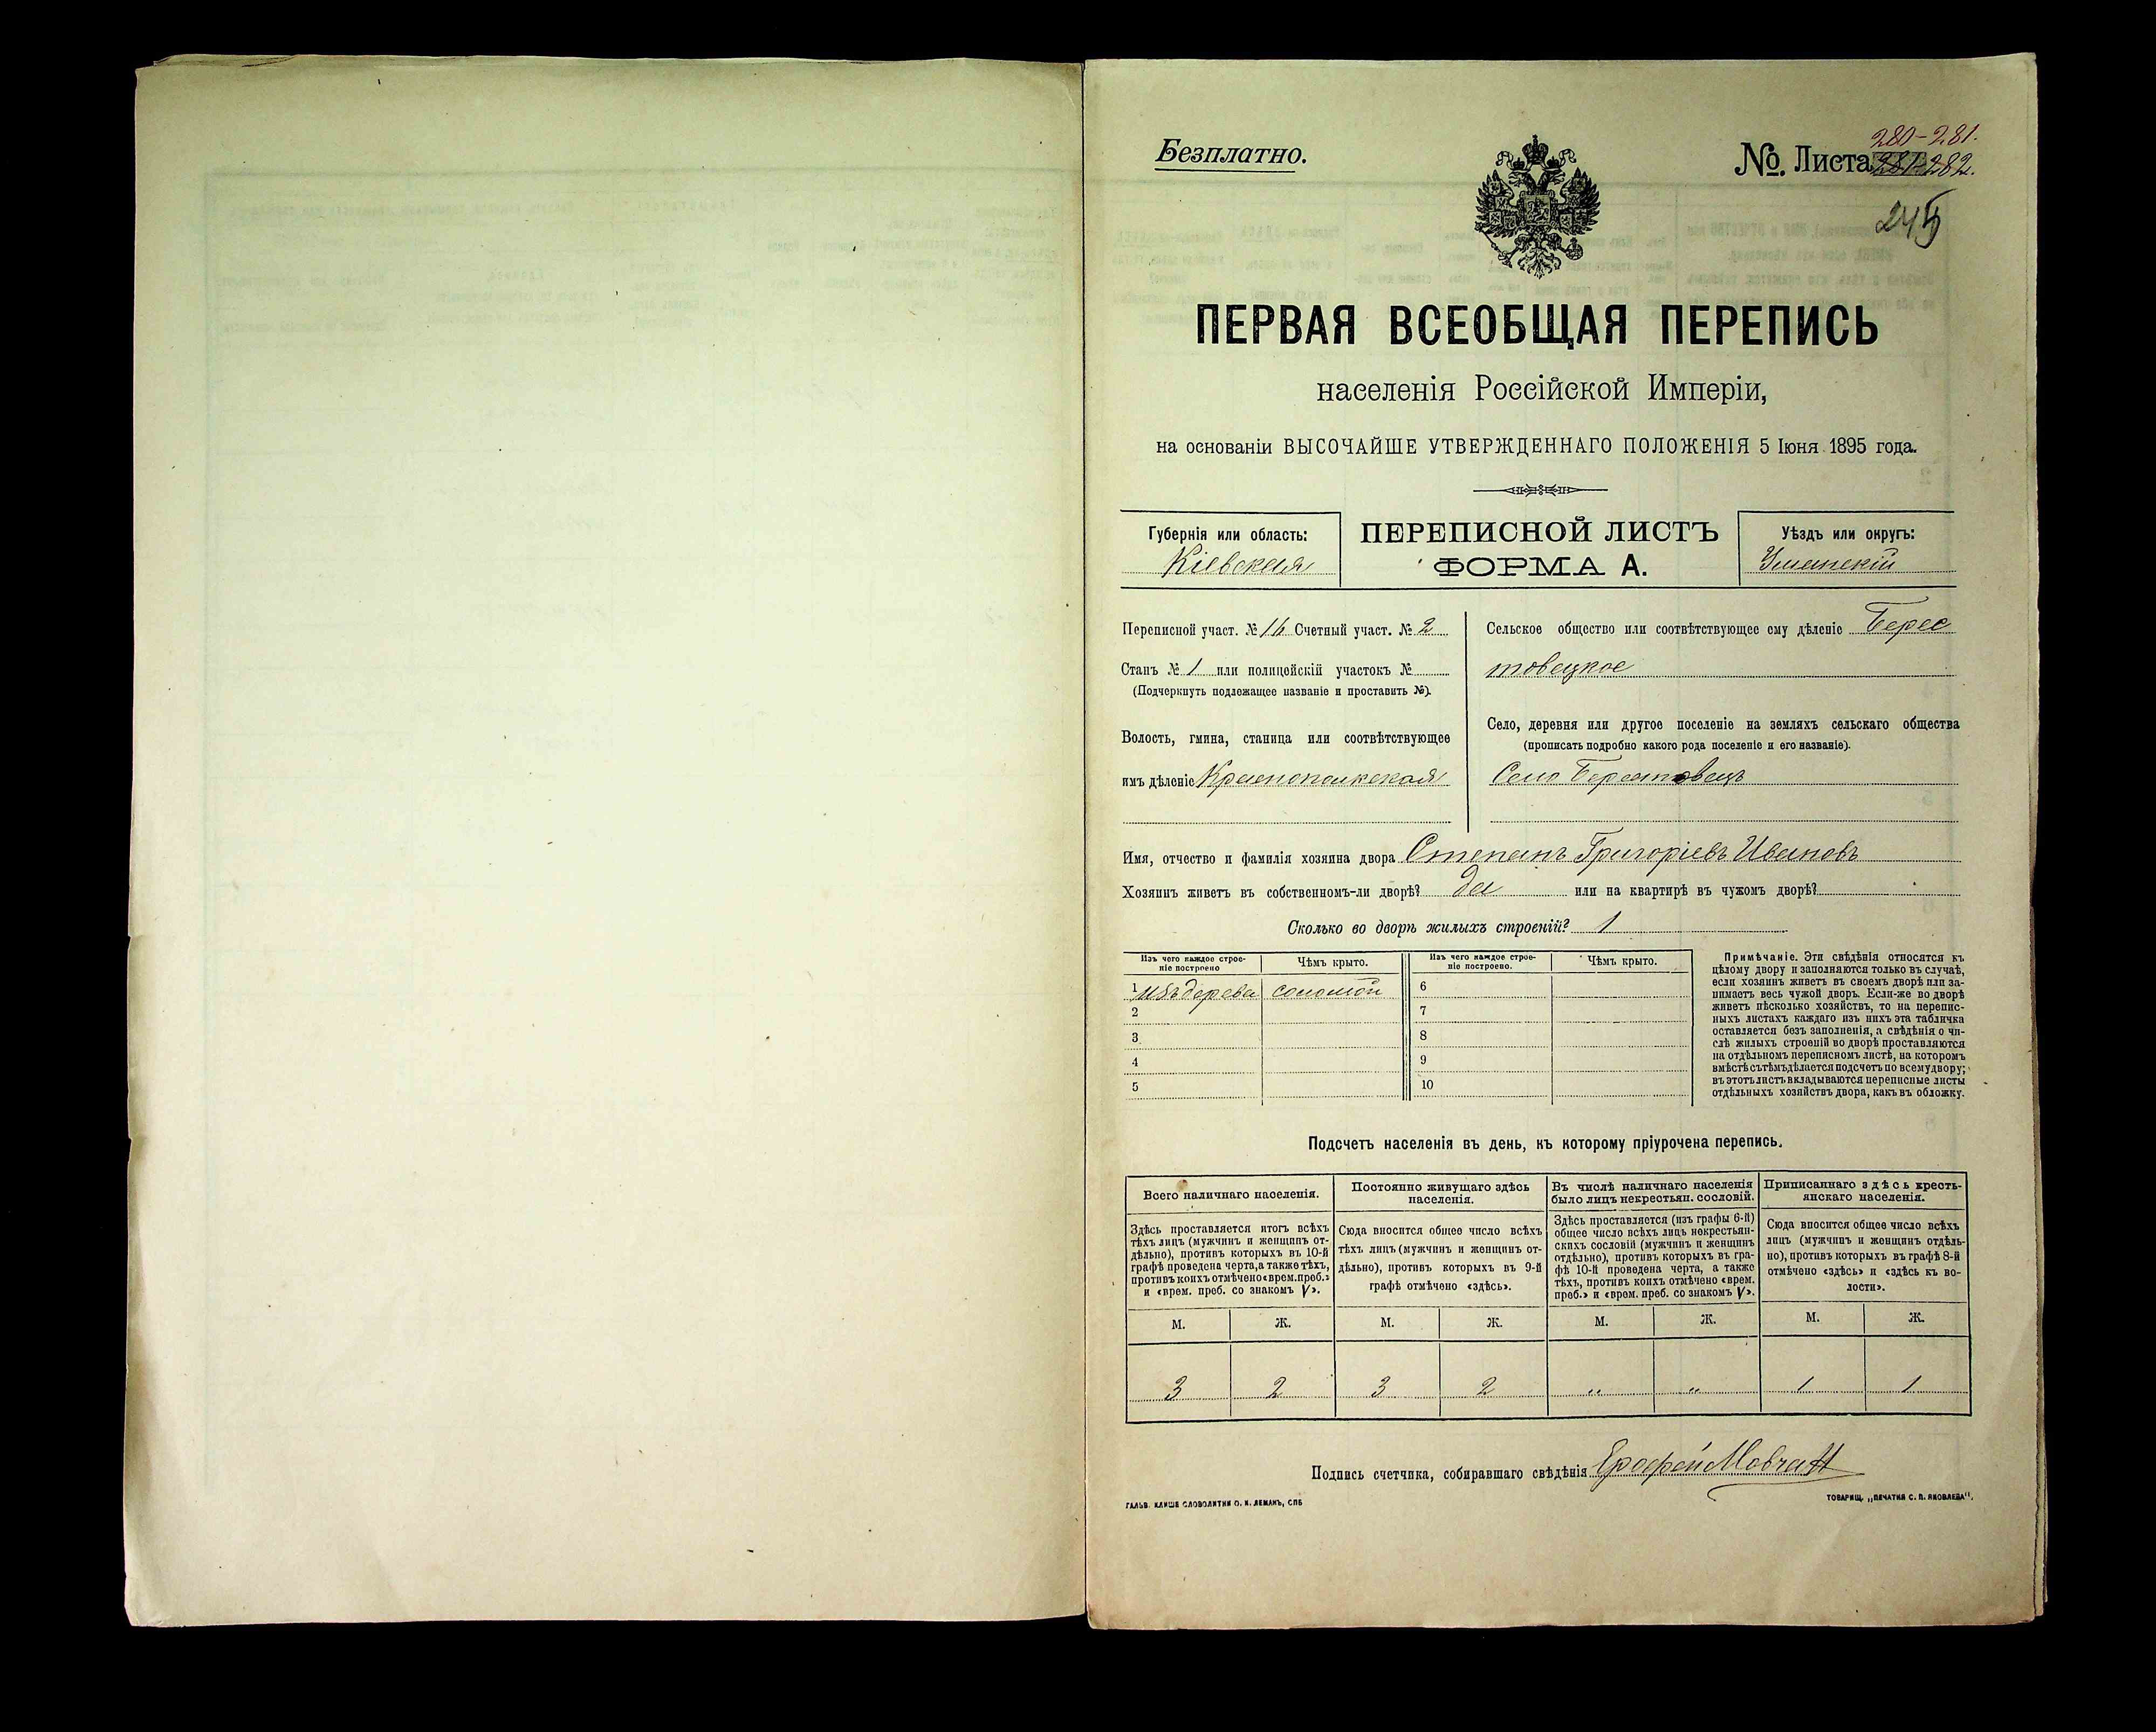 Безплатно.
280-281.
№. Листа 281-282.
245
ПЕРВАЯ ВСЕОБЩАЯ ПЕРЕПИСЬ
населенія Россійской Имперіи,
на основаніи ВЫСОЧАЙШЕ УТВЕРЖДЕННАГО ПОЛОЖЕНІЯ 5 Іюня 1895 года.
Губернія или область:
Кіевская
ПЕРЕПИСНОЙ ЛИСТЪ
ФОРМА А.
Уѣздъ или округъ:
Уманскій
Переписной участ. № 16 Счетный участ. № 2
Станъ № 1 или полицейскій участокъ №
(Подчеркнуть подлежащее названіе и проставить №).
Волость, гмина, станица или соотвѣтствующее
имъ дѣленіе Краснопольская
Сельское общество или соотвѣтствующее ему дѣленіе Берес
товецкое
Село, деревня или другое поселеніе на земляхъ сельскаго общества
(прописать подробно какого рода поселеніе и его названіе).
Село Берестовецъ
Имя, отчество и фамилія хозяина двора Степанъ Григоріевъ Ивановъ
Хозяинъ живетъ въ собственномъ-ли дворѣ? да или на квартирѣ въ чужомъ дворѣ?
Сколько во дворѣ жилыхъ строеній? 1
Изъ чего каждое строе-
ніе построено
Чѣмъ крыто.
Изъ чего каждое строе-
ніе построено.
Чѣмъ крыто.
1 изъ дерева соломой 6
2 7
3 8
4 9
5 10
Примѣчаніе. Эти свѣдѣнія относятся къ
цѣлому двору и заполняются только въ случаѣ,
если хозяинъ живетъ въ своемъ дворѣ или за-
нимаетъ весь чужой дворъ. Если-же во дворѣ
живетъ нѣсколько хозяйствъ, то на перепис-
ныхъ листахъ каждаго изъ нихъ эта табличка
оставляется безъ заполненія, а свѣдѣнія о чи-
слѣ жилыхъ строеній во дворѣ проставляются
на отдѣльномъ переписномъ листѣ, на которомъ
вмѣстѣ съ тѣмъ дѣлается подсчетъ по всему двору;
въ этотъ листъ вкладываются переписные листы
отдѣльныхъ хозяйствъ двора, какъ въ обложку.
Подсчетъ населенія въ день, къ которому пріурочена перепись.
Всего наличнаго населенія.
Здѣсь проставляется итогъ всѣхъ
тѣхъ лицъ (мужчинъ и женщинъ от-
дѣльно), противъ которыхъ въ 10-й
графѣ проведена черта, а также тѣхъ,
противъ коихъ отмѣчено «врем. преб.»
и «врем. преб. со знакомъ V».
Постоянно живущаго здѣсь
населенія.
Сюда вносится общее число всѣхъ
тѣхъ лицъ (мужчинъ и женщинъ от-
дѣльно), противъ которыхъ въ 9-й
графѣ отмѣчено «здѣсь».
Въ числѣ наличнаго населенія
было лицъ некрестьян. сословій.
Здѣсь проставляется (изъ графы 6-й)
общее число всѣхъ лицъ некрестьян-
скихъ сословій (мужчинъ и женщинъ
отдѣльно), противъ которыхъ въ гра-
фѣ 10-й проведена черта, а также
тѣхъ, противъ коихъ отмѣчено «врем.
преб.» и «врем. преб. со знакомъ V».
Приписаннаго здѣсь кресть-
янскаго населенія.
Сюда вносится общее число всѣхъ
лицъ (мужчинъ и женщинъ отдѣль-
но), противъ которыхъ въ графѣ 8-й
отмѣчено «здѣсь» и «здѣсь къ во-
лости».
М. Ж. М. Ж. М. Ж. М. Ж.
3 2 3 2 „ „ 1 1
Подпись счетчика, собиравшаго свѣдѣнія Ерофей Мовчан
ГАЛЬВ. КЛИШЕ СЛОВОЛИТНИ О. И. ЛЕМАНЪ, СПБ
ТОВАРИЩ. „ПЕЧАТНЯ С. П. ЯКОВЛЕВА".